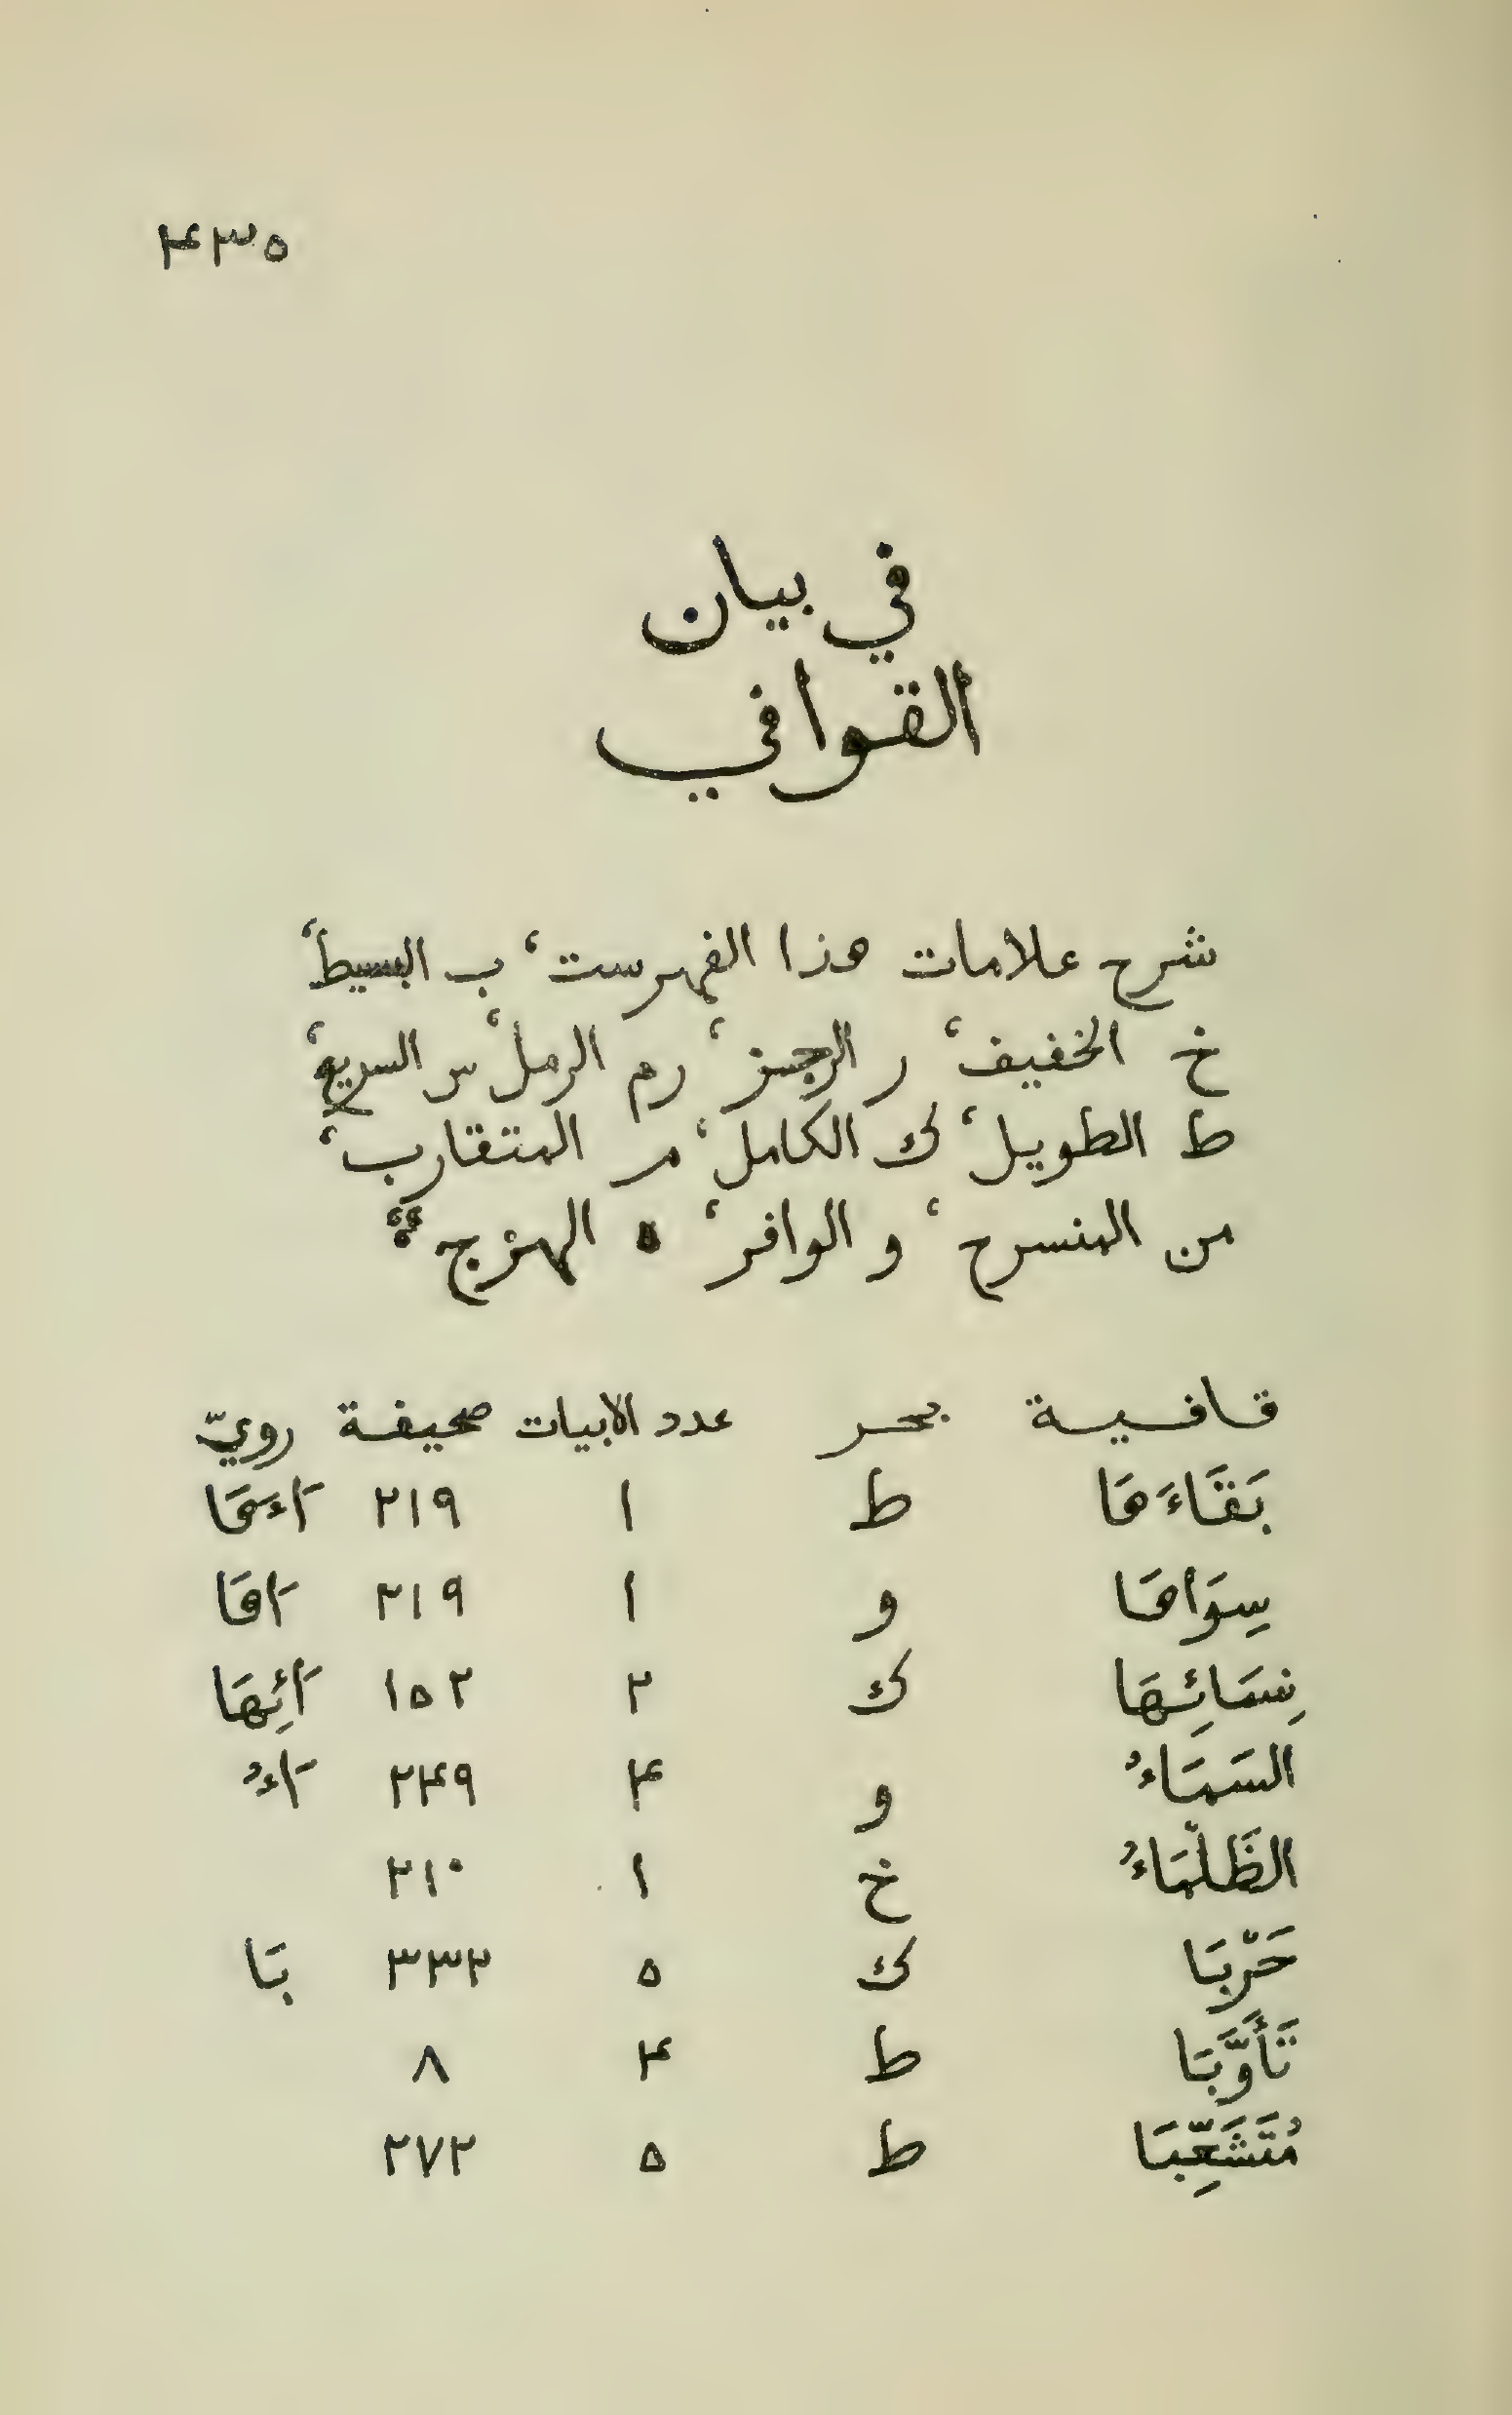 ۴۳۵
في بيان
القوافي
شرح علامات هذا الفهرست، ب البسيط،
خ الخفيف، ر الرجز، رم الرمل، س السريع،
ط الطويل، ك الكامل، م المتقارب،
من المنسرح، و الوافر، ه الهزج
قافية بحر عدد الابيات صحيفة رويّ
بَقَاءَهَا ط ١ ٢١٩ َاءَهَا
سِوَاهَا و ١ ٢١٩ َاهَا
نِسَائِهَا ك ٢ ١٥٢ َائِهَا
السَمَاءُ و ۴ ٢۴٩ َاءُ
الظَلْمَاءُ خ ١ ٢١٠
حَرْبَا ك ٥ ٣٣٢ بَا
تَأَوَّبَا ط ۴ ٨
مُتَشَعِّبَا ط ٥ ٢٧٢